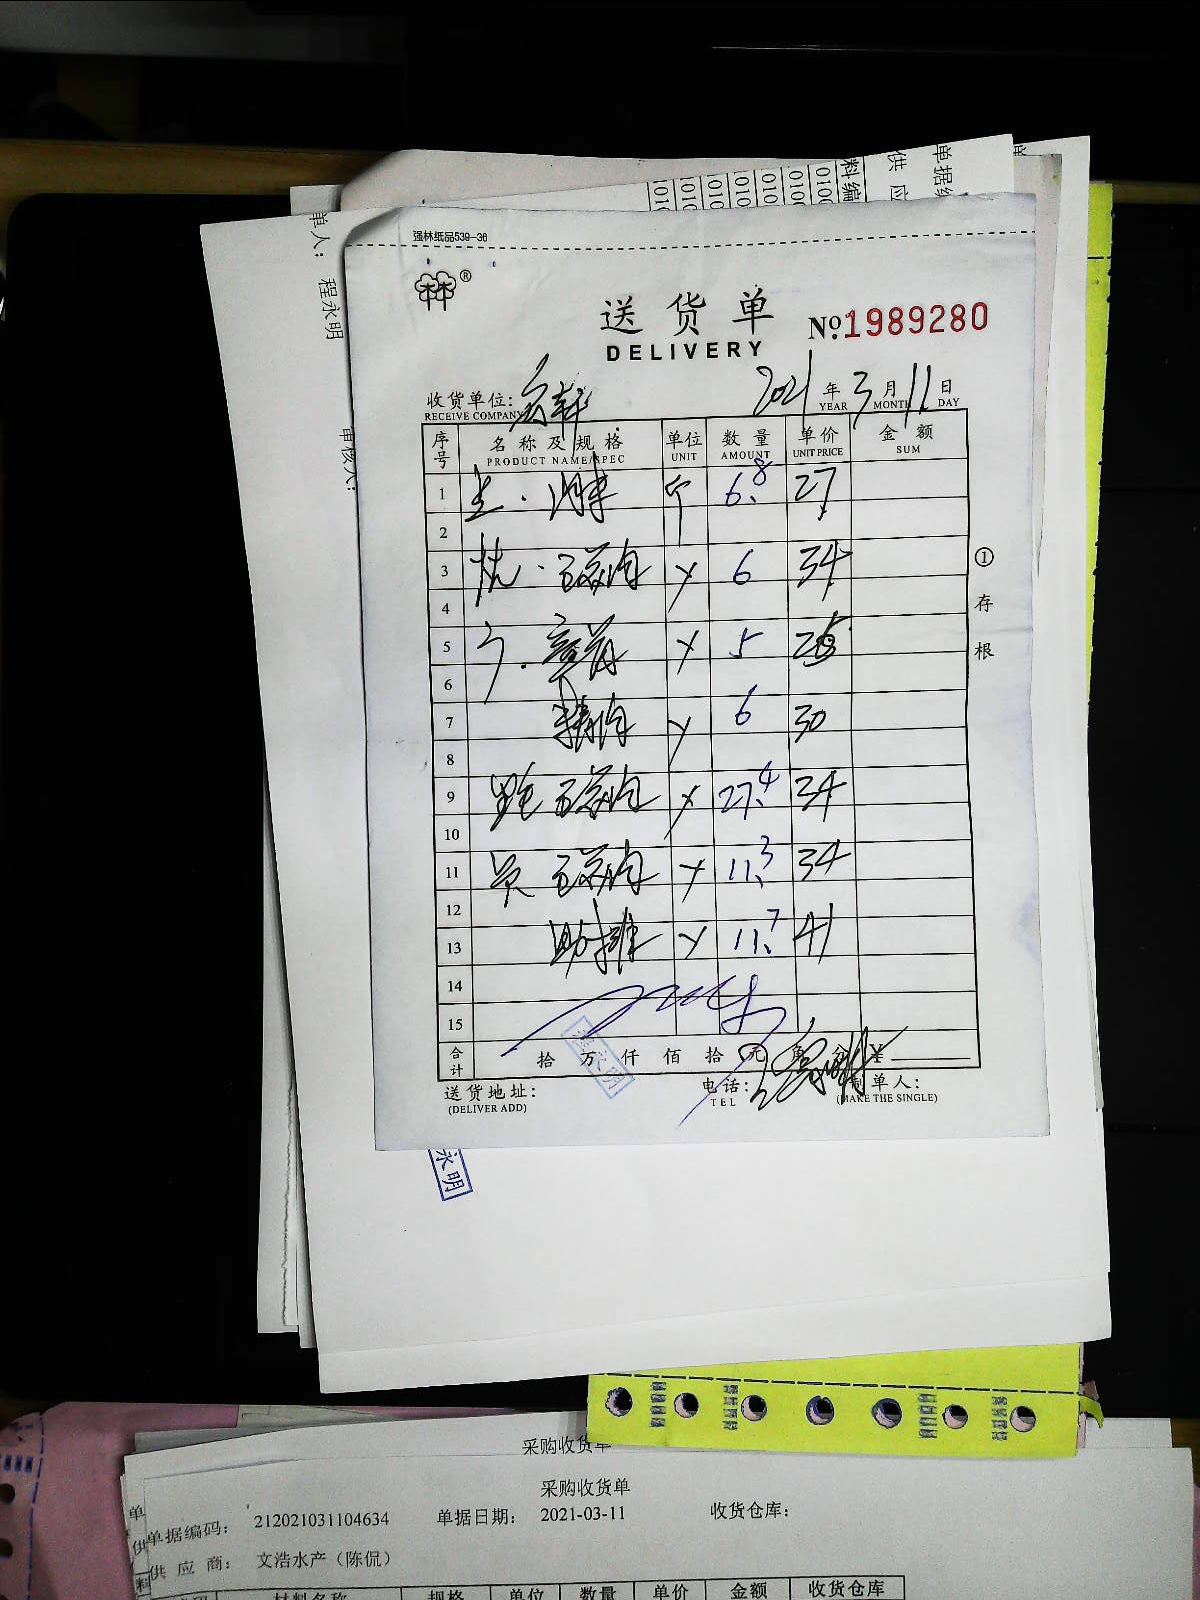 单据编
供应
料编
010
010
010
010
010
010
单人：程永明
审核人：
强林纸品539-36
林林®
送货单
№:1989280
DELIVERY
收货单位：
2021年3月11日
RECEIVE COMPANY YEAR MONTH DAY
序号 名称及规格 单位 数量 单价 金额
PRODUCT NAME/SPEC UNIT AMOUNT UNIT PRICE SUM
1 6.8 27
2
3 五花肉 6 34
4
5 5 25
6
7 精肉 6 30
8
9 五花肉 27.4 34
10
11 五花肉 11.3 34
12
13 助排 11.7 41
14
15
合计 拾 万 仟 佰 拾 元 角 分 ¥
程永明
送货地址： 电话： 制单人：
(DELIVER ADD) TEL (MAKE THE SINGLE)
①存根
永明
采购收货单
采购收货单
单据编码： 212021031104634 单据日期： 2021-03-11 收货仓库：
供应商： 文浩水产（陈侃）
材料名称 规格 单位 数量 单价 金额 收货仓库